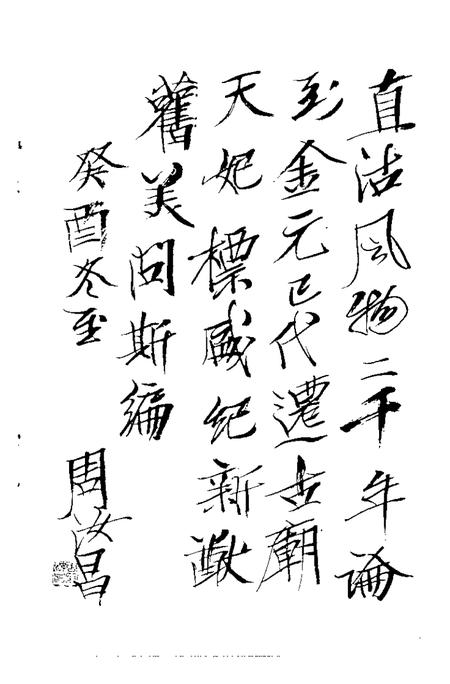 直沽风物二千年論
到金元已代遷古廟
天妃標盛紀新猷
舊美問斯編
癸酉冬至 周汝昌